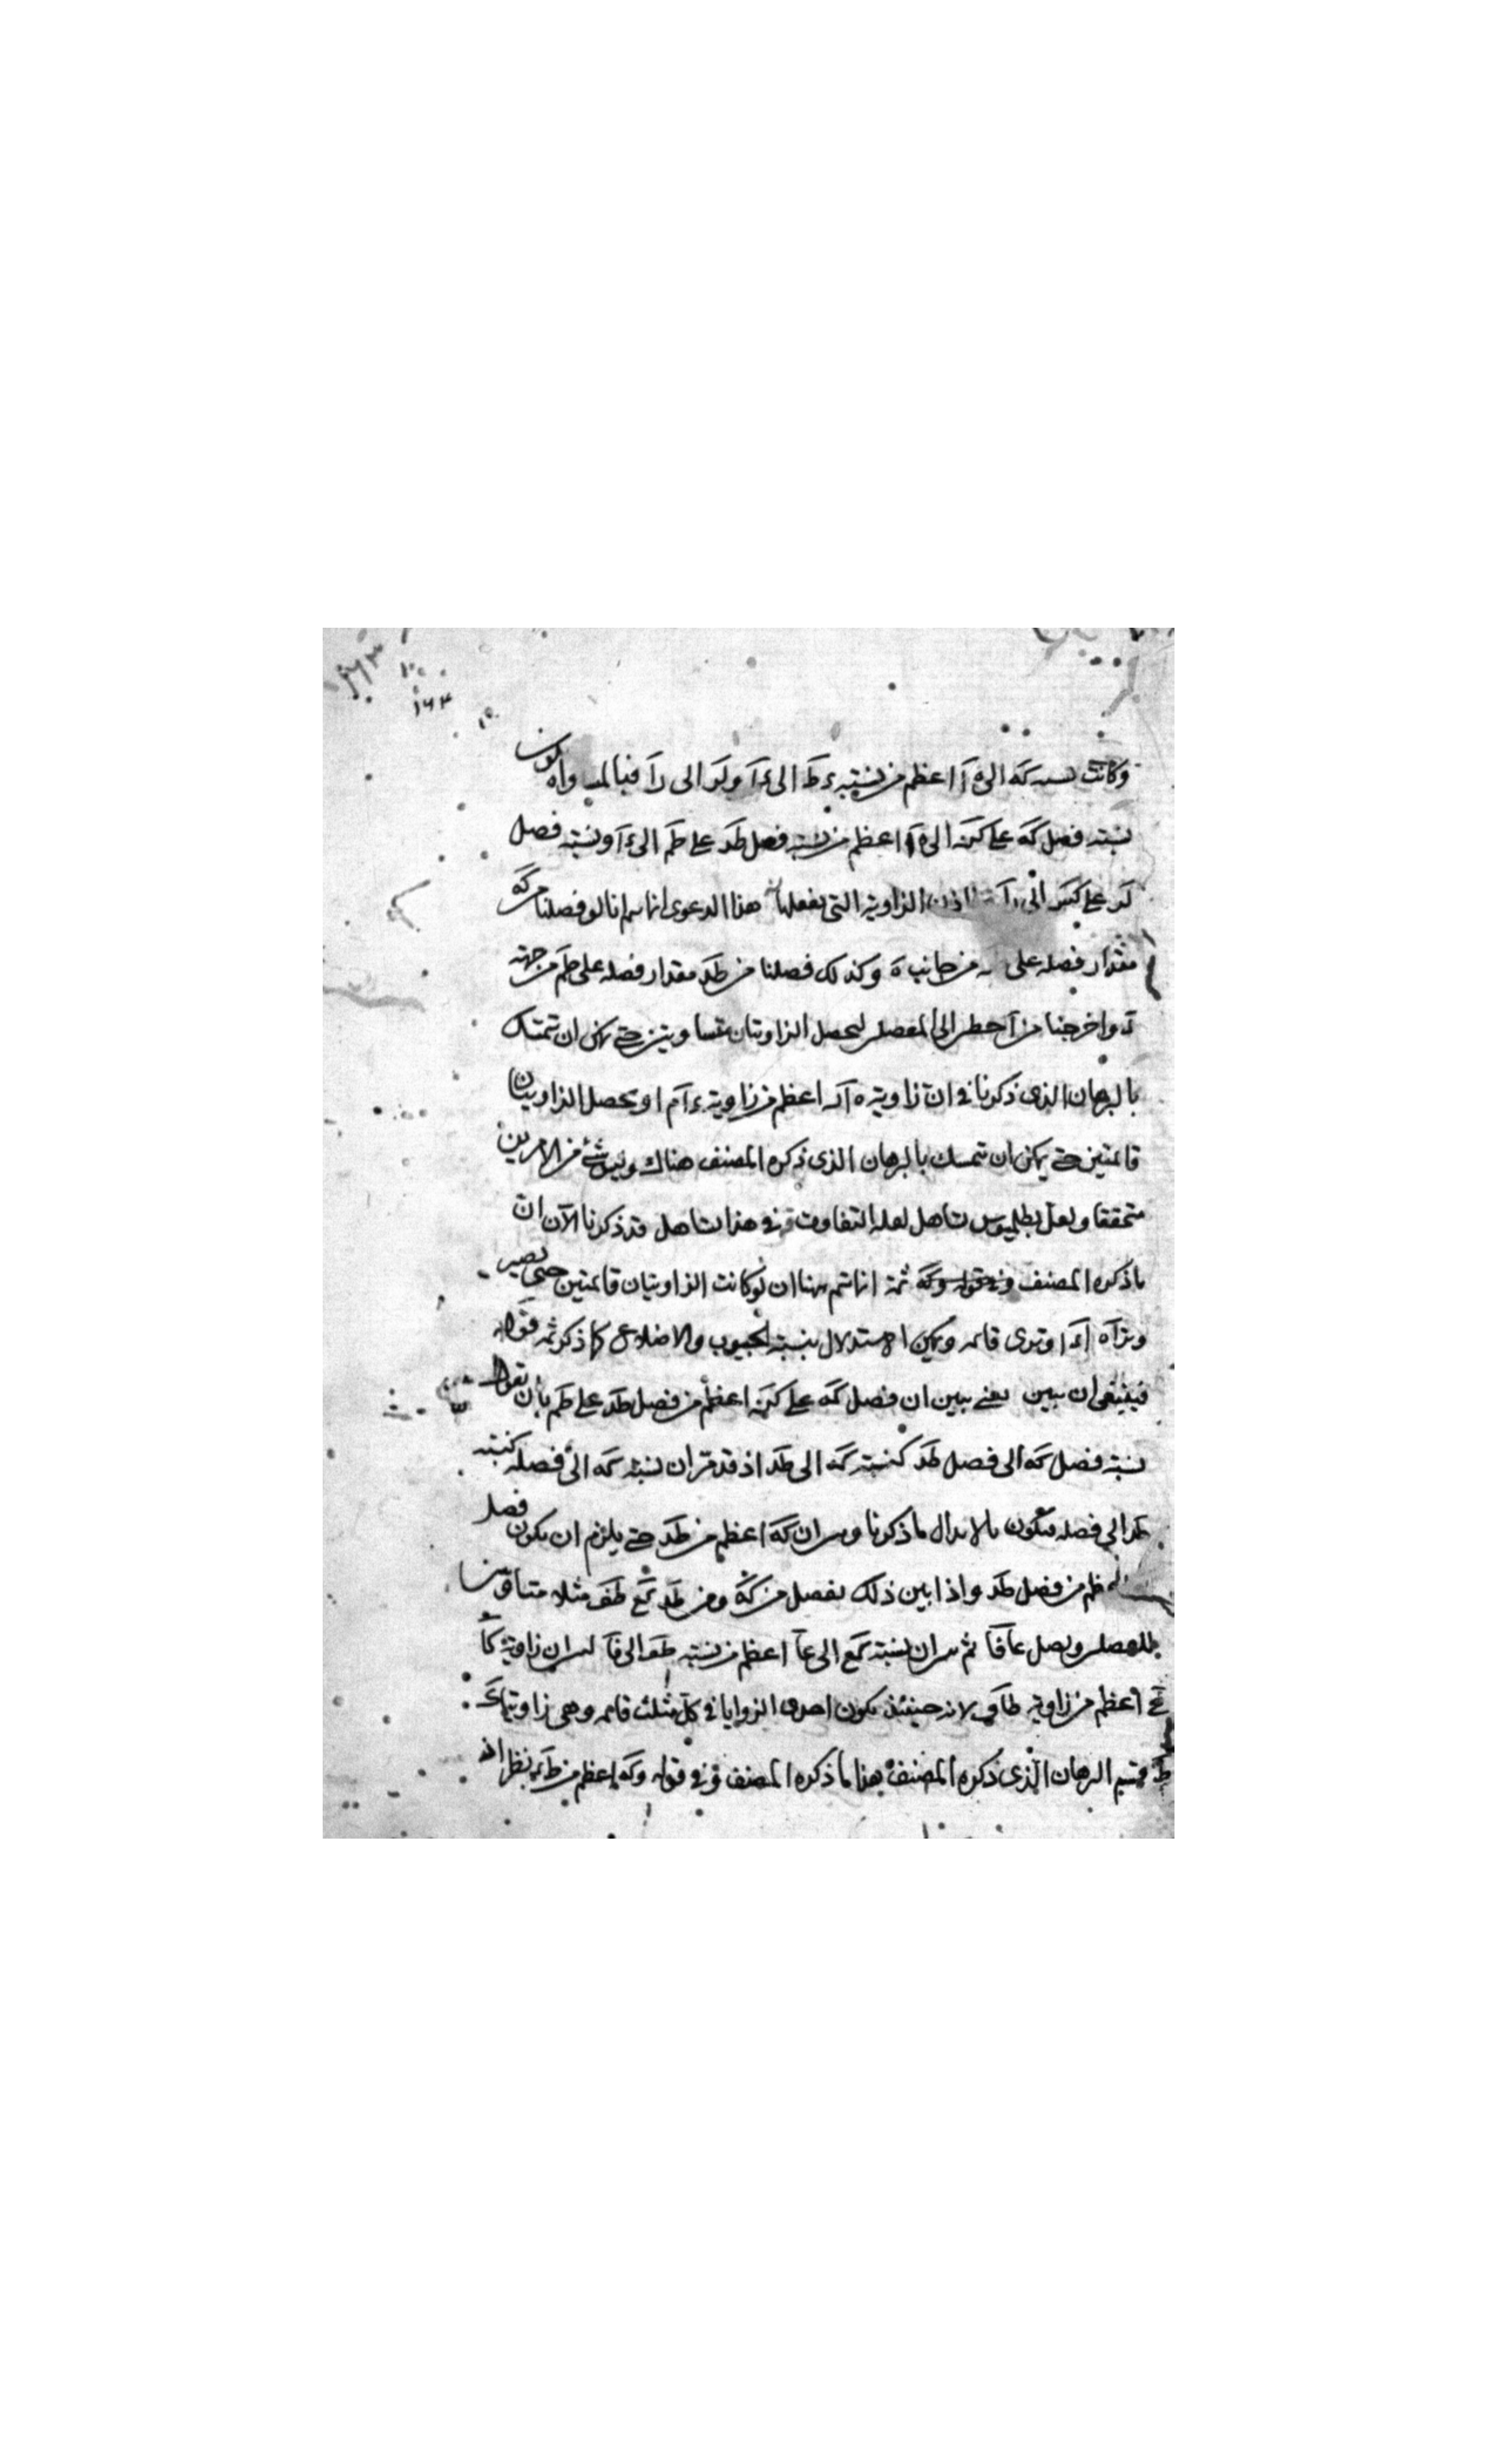 ١٦٣
وكانت نسبة كه الى ه آ اعظم من نسبة ء ط الى ء آ و لر الى رآ فبالمساواة يكون
نسبة فصل كه على الى ه آ اعظم من نسبة فصل طد على طم الى ء آ ونسبة فصل
لر على الى رآ الزاوية التى يفعلها هذا الدعوى انما يتم انا لو فصلنا من كه
مقدار فصله على من جانب ه وكذلك فصلنا من طد مقدار فصله على طم من جهة
د واخرجنا من آ خطين الى المفصلين ليحصل الزاويتان متساويتين حتى يمكن ان تمسك
بالبرهان الذى ذكرنا فى ان زاوية ه آ اعظم من زاوية ء آ م او تحصل الزاويتان
قائمتين حتى يمكن ان تمسك بالبرهان الذى ذكره المصنف هناك وليس شئ من الامرين
متحققا ولعل بطلميوس تساهل لعلة التفاوت فى هذا تساهل قد ذكرنا الآن ان
ما ذكره المصنف ثمة انما تتم ههنا ان لو كانت الزاويتان قائمتين حتى يصير
وترآه آء اوترى قائمة ويمكن الاستدلال بنسبة الجيوب والاضلاع كما ذكر ثمة قوله
فينبغى ان يبين يعنى يبين ان فصل كه على اعظم من فصل طد على طم بان نقول
نسبة فصل كه الى فصل طد كنسبة كه الى طد اذ قد مر ان نسبة كه الى فصله كنسبة
طد الى فصله فيكون بالابدال ما ذكرنا وبين ان كه اعظم من طد حتى يلزم ان يكون فصل
اعظم من فصل طد واذا بين ذلك نفصل من كه ومن طد كع طف مثلا متساويين
للفصلين ونصل عآ فآ ثم نبين ان نسبة كع الى عآ اعظم من نسبة طف الى فآ ليبين ان زاوية كآ
ع اعظم من زاوية طاف لانه حينئذ يكون احدى الزوايا فى كل مثلث قائمة وهى زاويتا ك
ط فيتم البرهان الذى ذكره المصنف هذا ما ذكره المصنف وفى قوله وكه اعظم من طء نظر لانه